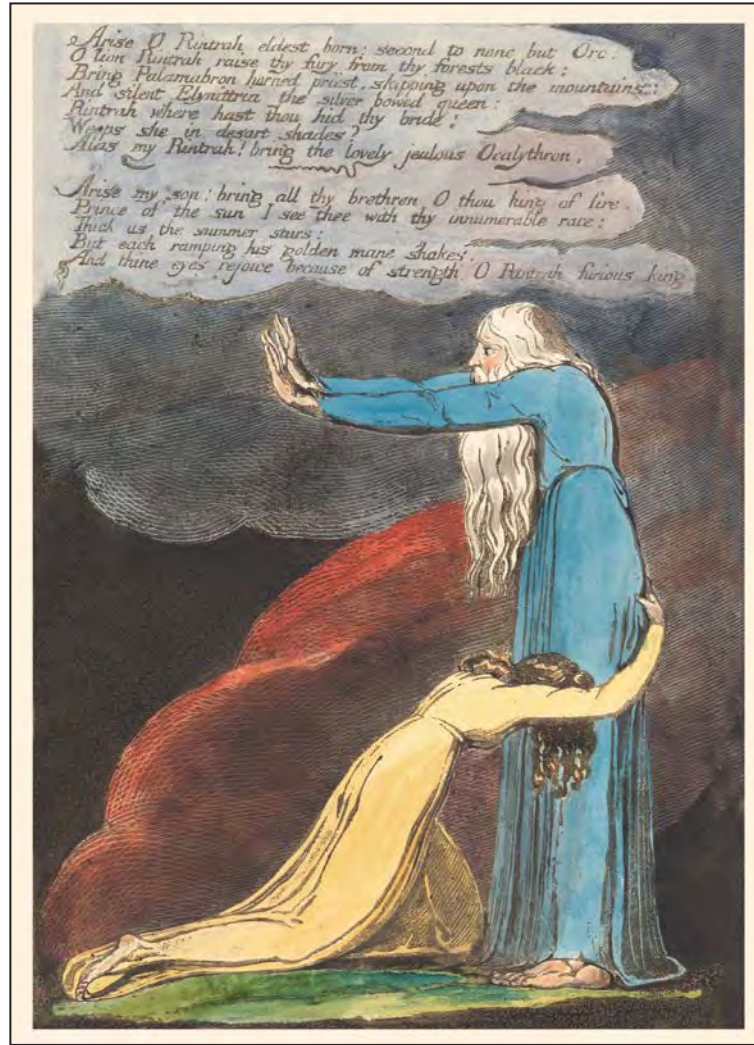 Arise O Rintrah eldest born: second to none but Orc:
O lion Rintrah raise thy fury from thy forests black:
Bring Palamabron horned priest, skipping upon the mountains:
And silent Elynittria the silver bowed queen:
Rintrah where hast thou hid thy bride!
Weeps she in desart shades?
Alas my Rintrah! bring the lovely jealous Ocalythron.
Arise my son: bring all thy brethren O thou king of fire.
Prince of the sun I see thee with thy innumerable race:
Thick as the summer stars:
But each ramping his golden mane shakes,
And thine eyes rejoice because of strength O Rintrah furious king